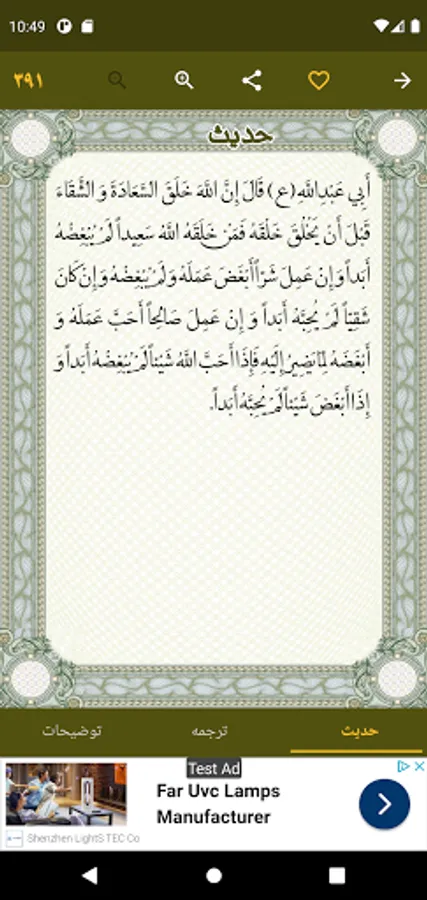 10:49
۳۹۱
حدیث
أَبِي عَبْدِاللَّهِ (ع) قَالَ إِنَّ اللَّهَ خَلَقَ السَّعَادَةَ وَ الشَّقَاءَ
قَبْلَ أَنْ يَخْلُقَ خَلْقَهُ فَمَنْ خَلَقَهُ اللَّهُ سَعِيداً لَمْ يُبْغِضْهُ
أَبَداً وَ إِنْ عَمِلَ شَرّاً أَبْغَضَ عَمَلَهُ وَ لَمْ يُبْغِضْهُ وَ إِنْ كَانَ
شَقِيّاً لَمْ يُحِبَّهُ أَبَداً وَ إِنْ عَمِلَ صَالِحاً أَحَبَّ عَمَلَهُ وَ
أَبْغَضَهُ لِمَا يَصِيرُ إِلَيْهِ فَإِذَا أَحَبَّ اللَّهُ شَيْئاً لَمْ يُبْغِضْهُ أَبَداً وَ
إِذَا أَبْغَضَ شَيْئاً لَمْ يُحِبَّهُ أَبَداً.
حدیث
ترجمه
توضیحات
Test Ad
Far Uvc Lamps
Manufacturer
Shenzhen LightS TEC Co